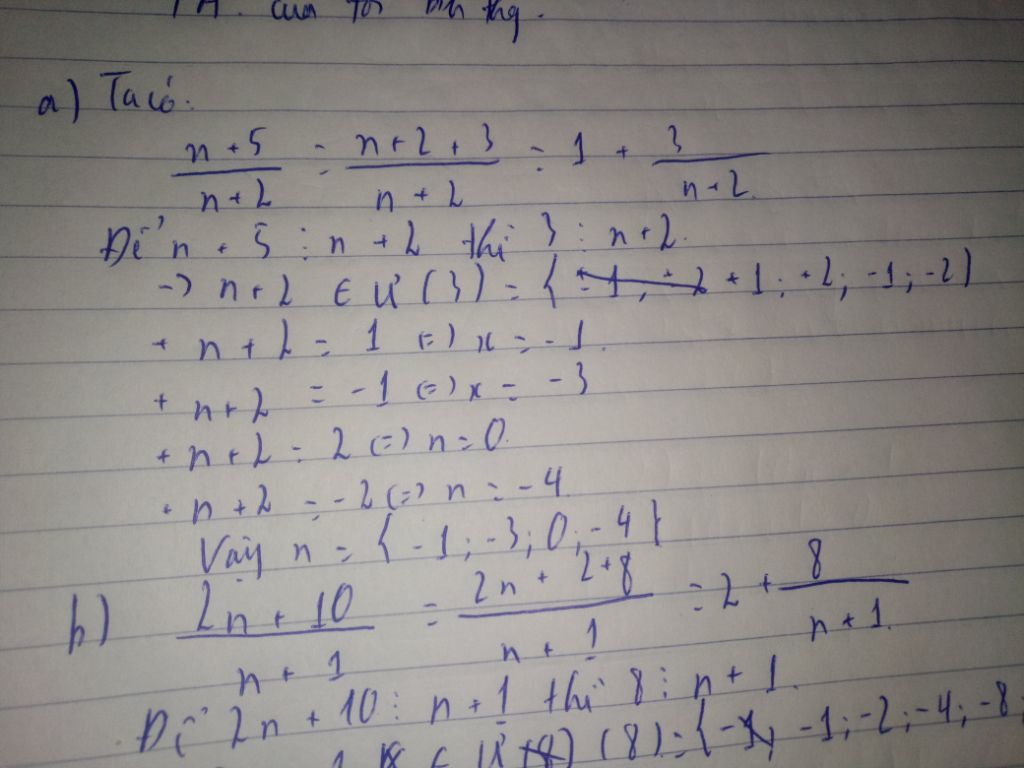 của tôi
a) Ta có:
n+5/n+2 = n+2+3/n+2 = 1 + 3/n+2.
Để n+5 ⋮ n+2 thì 3 ⋮ n+2.
-> n+2 ∈ Ư(3) = { +1; +2; -1; -2)
+ n+2 = 1 (=) x = -1.
+ n+2 = -1 (=) x = -3
+ n+2 = 2 (=) n = 0.
+ n+2 = -2 (=) n = -4.
Vậy n = { -1; -3; 0; -4 }
b) 2n+10/n+1 = 2n+2+8/n+1 = 2 + 8/n+1.
Để 2n+10 ⋮ n+1 thì 8 ⋮ n+1.
∈ Ư (8) = { -1; -2; -4; -8;